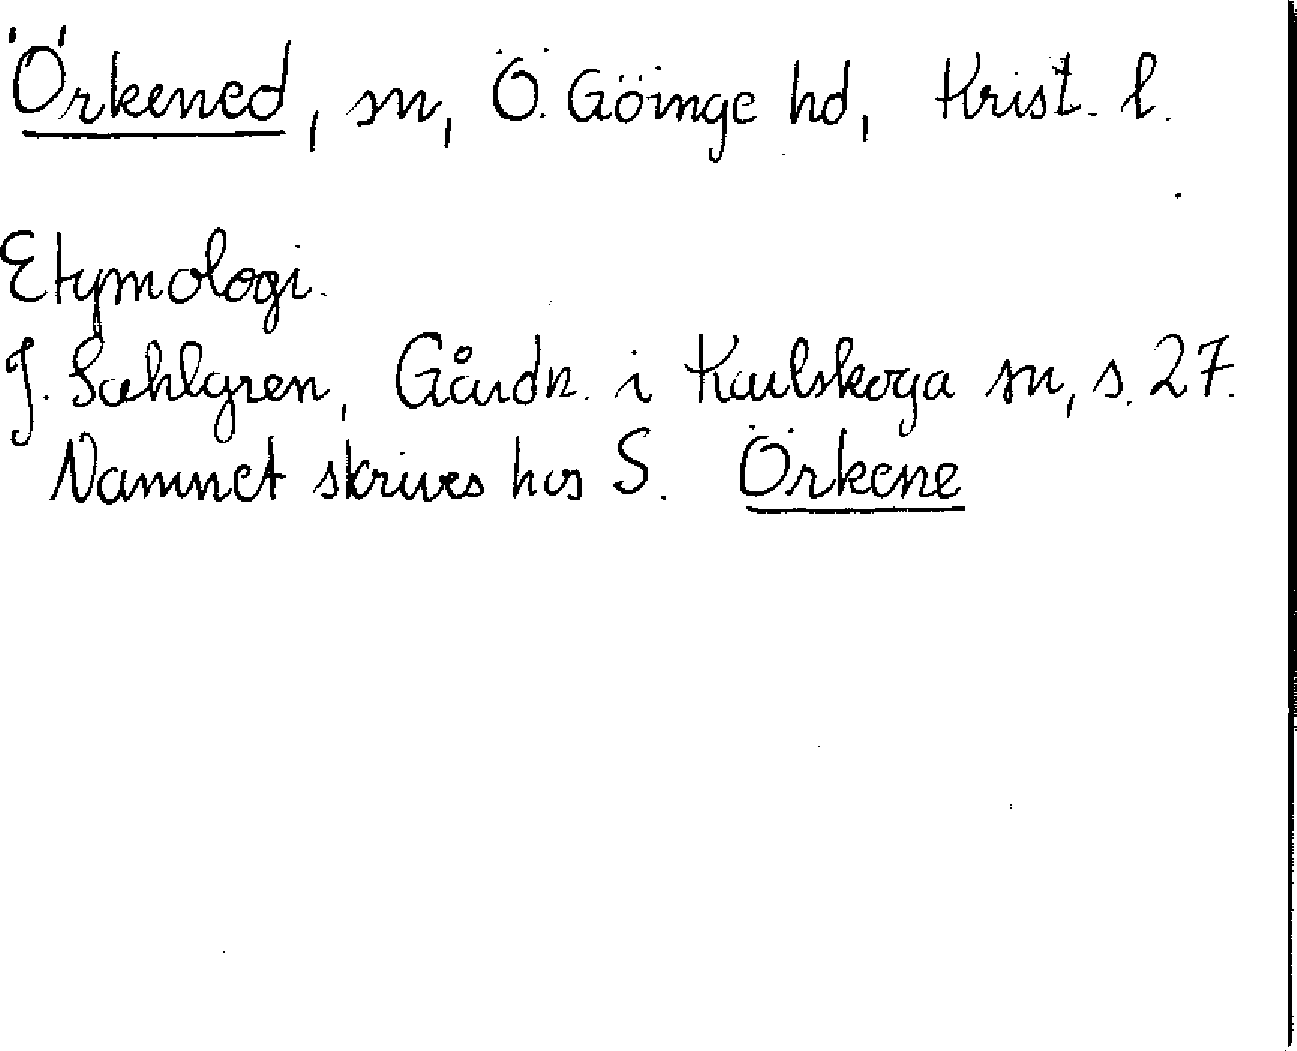 Örkened, sn, Ö. Göinge hd, Krist. l.
Etymologi.
J. Sahlgren, Gårdn. i Karlskoga sn, s. 27.
Namnet skrives hos S. Örkene